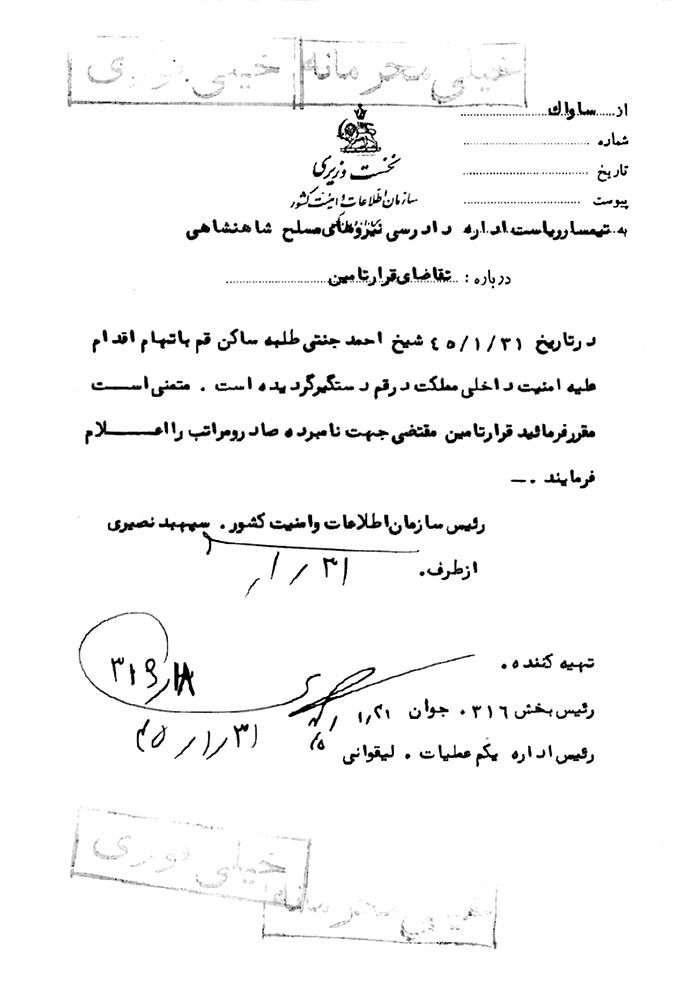 خیلی محرمانه
خیلی فوری
از ساواك
شماره
تاریخ
پیوست
نخست وزیری
سازمان اطلاعات و امنیت کشور
به تیمسار ریاست اداره دادرسی نیروهای مسلح شاهنشاهی
درباره: تقاضای قرار تامین
در تاریخ ۴۵/۱/۳۱ شیخ احمد جنتی طلبه ساکن قم باتهام اقدام
علیه امنیت داخلی مملکت در قم دستگیر گردیده است . متمنی است
مقرر فرمائید قرار تامین مقتضی جهت نامبرده صادر و مراتب را اعلام
فرمایند .
رئیس سازمان اطلاعات و امنیت کشور . سپهبد نصیری
از طرف .
۳۱/۱/
تهیه کننده .
رئیس بخش ۳۱۶ . جوان
رئیس اداره یکم عملیات . لیقوانی
۴۵/۱/۳۱
خیلی فوری
خیلی محرمانه